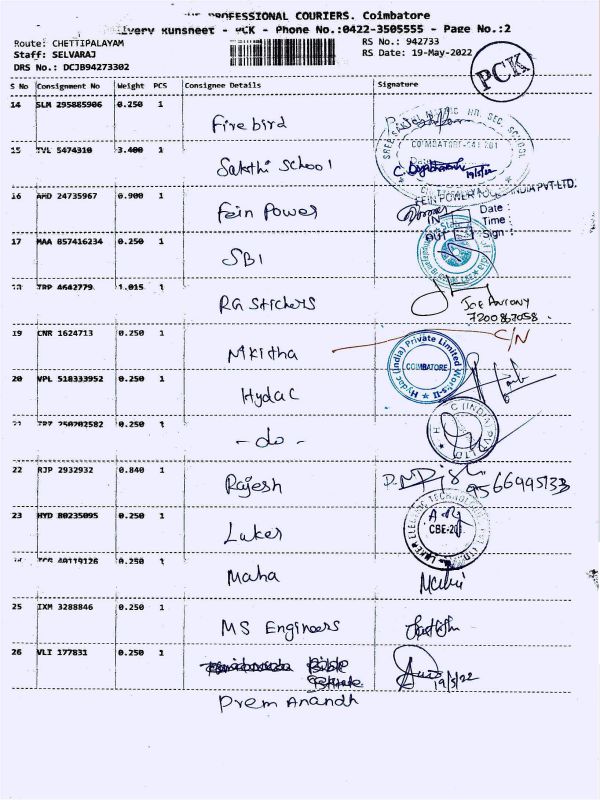 THE PROFESSIONAL COURIERS. Coimbatore
Delivery Runsheet - PCK - Phone No.:0422-3505555 - Page No.:2
Route: CHETTIPALAYAM
RS No.: 942733
Staff: SELVARAJ
RS Date: 19-May-2022
DRS No.: DCJB94273302
PCK
S No Consignment No Weight PCS Consignee Details Signature
14 SLM 295885906 0.250 1 Fire bird
15 TVL 5474310 3.400 1 Sakthi School
COIMBATORE-641 201
19/5/22
16 AMD 24735967 0.900 1 Fein Power
FEIN POWER TOOLS INDIA PVT-LTD.
IN Date :
OUT Time :
Sign :
17 MAA 857416234 0.250 1 SBI
18 TRP 4642779 1.015 1 RG Stickers
Joe Antony
7200867058
19 CNR 1624713 0.250 1 Nikitha C/N
20 VPL 518333952 0.250 1 Hydac
Hydac (India) Private Limited Works-II
COIMBATORE
21 TRZ 250202582 0.250 1 - do -
C (INDIA) PVT LTD
22 RJP 2932932 0.840 1 Rajesh
9566995133
23 HYD 80235095 0.250 1 Luker
LUKER ELECTRIC TECHNOLOGIES PVT LTD
CBE-201
40119126 0.250 1 Maha
25 IXM 3288846 0.250 1 MS Engineers
26 VLI 177831 0.250 1
19/5/22
Prem Anandh